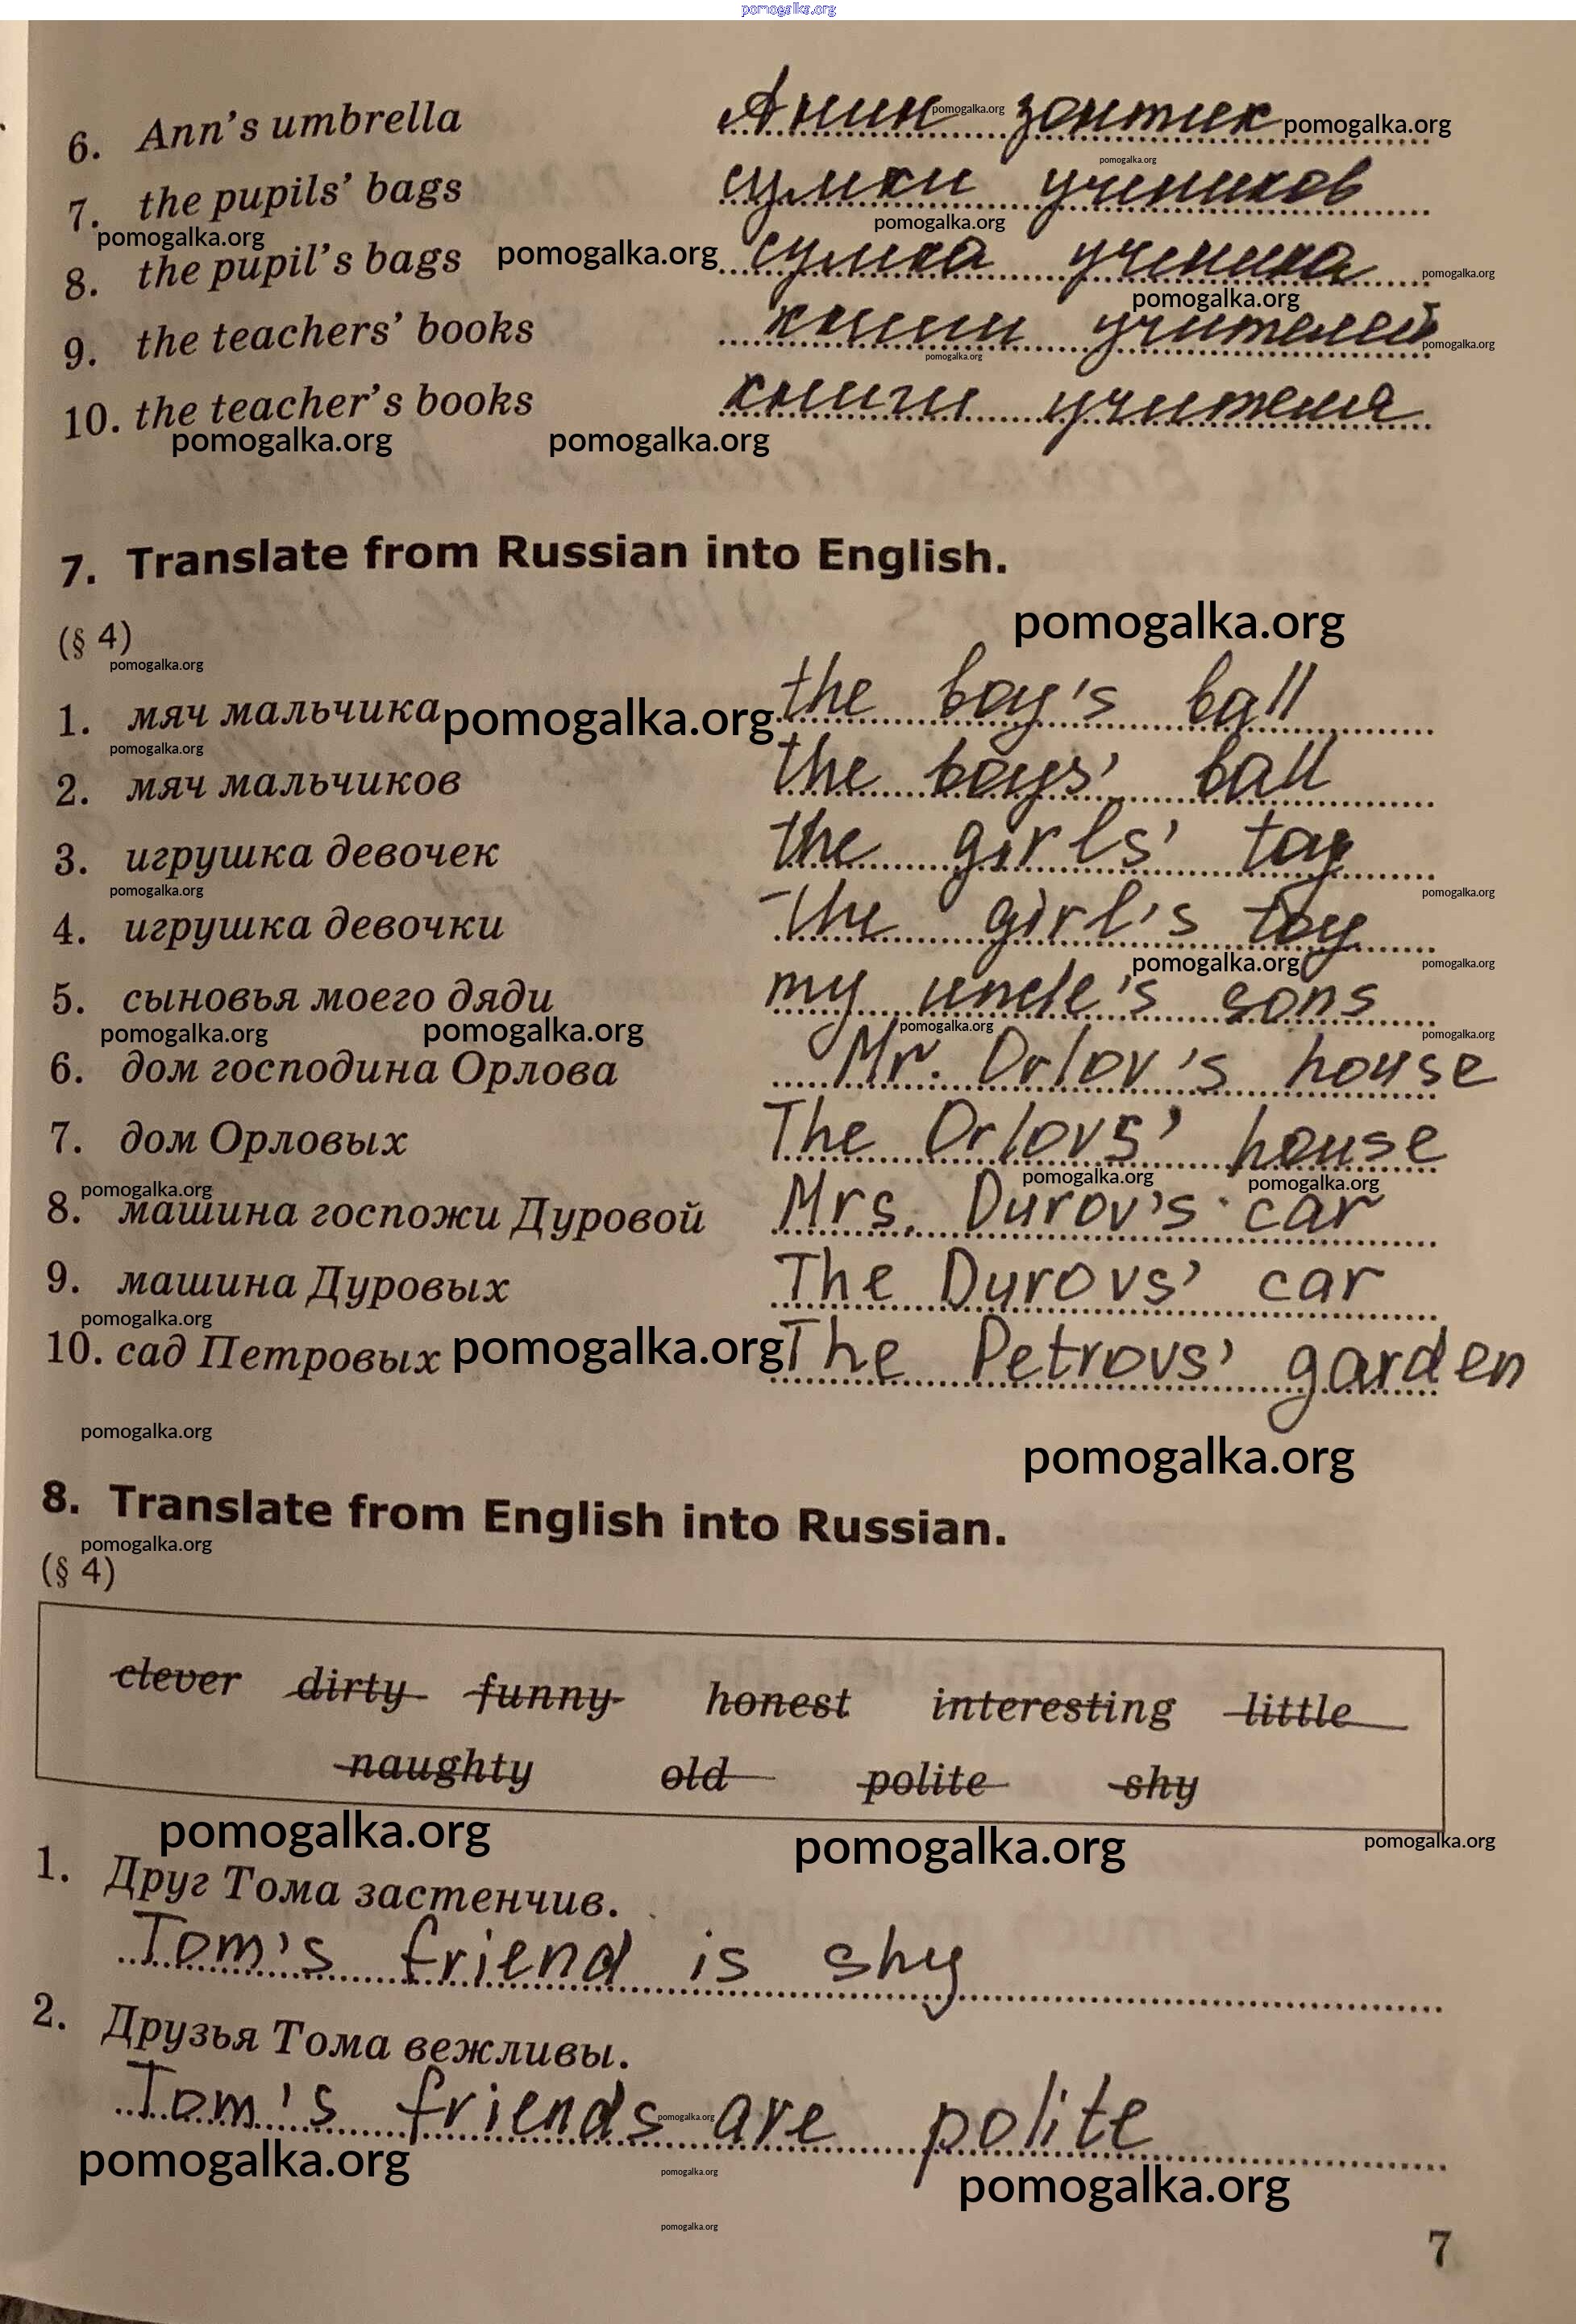 pomogalka.org
6. Ann's umbrella Анин pomogalka.org зонтик pomogalka.org
pomogalka.org
7. the pupils' bags сумки учеников
pomogalka.org pomogalka.org
8. the pupil's bags pomogalka.org сумка ученика pomogalka.org
pomogalka.org
9. the teachers' books книги учителей pomogalka.org
pomogalka.org
10. the teacher's books книги учителя
pomogalka.org pomogalka.org
7. Translate from Russian into English.
pomogalka.org
(§ 4)
pomogalka.org
1. мяч мальчика pomogalka.org the boy's ball
pomogalka.org
2. мяч мальчиков the boys' ball
3. игрушка девочек the girls' toy
pomogalka.org pomogalka.org
4. игрушка девочки The girl's toy
pomogalka.org pomogalka.org
5. сыновья моего дяди my uncle's sons
pomogalka.org pomogalka.org pomogalka.org pomogalka.org
6. дом господина Орлова Mr. Orlov's house
7. дом Орловых The Orlovs' house
pomogalka.org pomogalka.org pomogalka.org
8. машина госпожи Дуровой Mrs. Durov's car
9. машина Дуровых The Durovs' car
pomogalka.org
10. сад Петровых pomogalka.org The Petrovs' garden
pomogalka.org pomogalka.org
8. Translate from English into Russian.
pomogalka.org
(§ 4)
clever dirty funny honest interesting little
naughty old polite shy
pomogalka.org pomogalka.org pomogalka.org
1. Друг Тома застенчив.
Tom's friend is shy
2. Друзья Тома вежливы.
Tom's friends pomogalka.org are polite
pomogalka.org pomogalka.org pomogalka.org
pomogalka.org
7